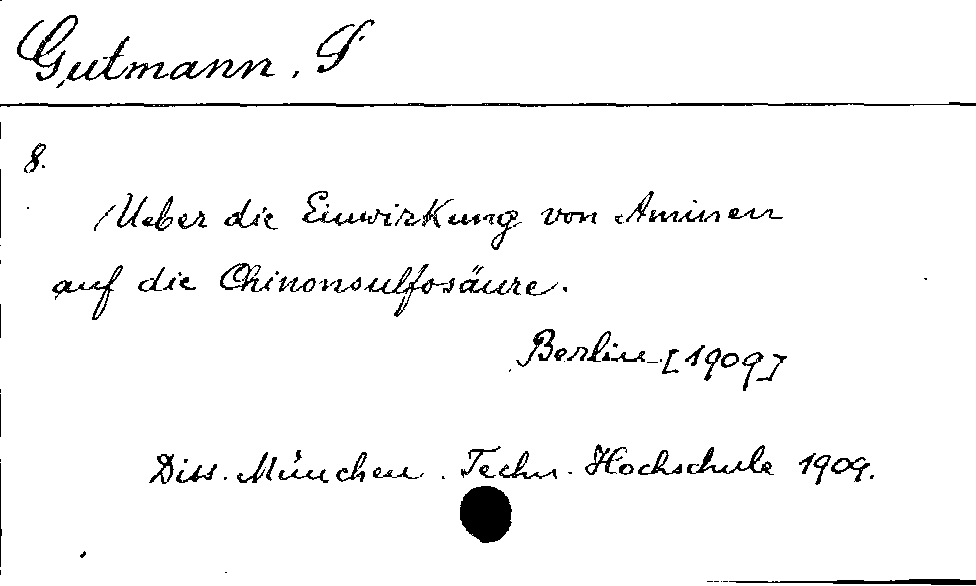 Gutmann, S
8.
Ueber die Einwirkung von Aminen
auf die Chinonsulfosäure.
Berlin [1909]
Diss. München. Techn. Hochschule 1909.